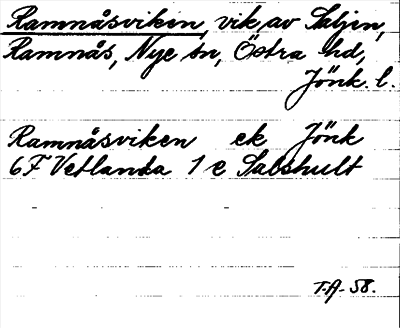 Ramnåsviken, vik av Saljen,
Ramnås, Nye sn, Östra hd,
Jönk. l.
Ramnåsviken ek Jönk
6F Vetlanda 1 e Salshult
T.A. 58.